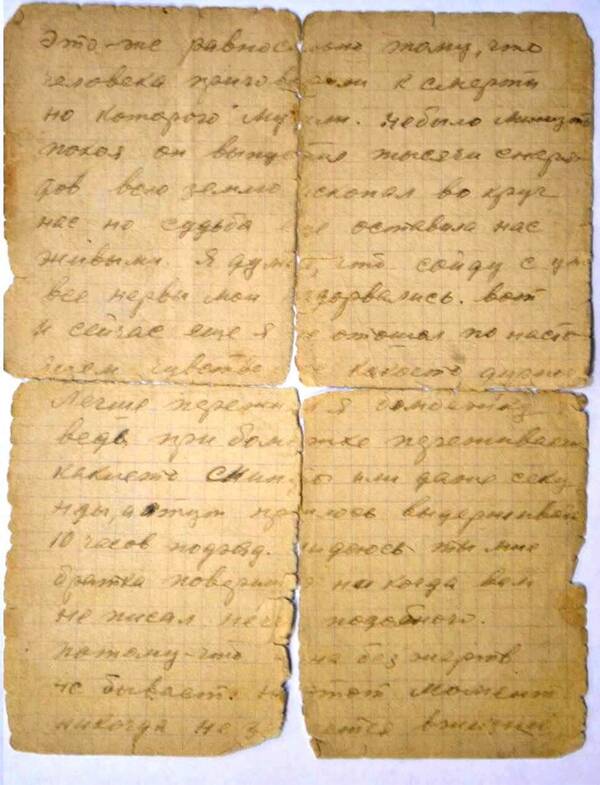 Это-же равносильно тому, что
человека приговорили к смерти
но которого мучили. небыло минуты
покоя он выпустил тысячи снаря
дов всю землю ископал во круг
нас но судьба еще оставила нас
живыми. Я думал, что сойду с ума
все нервы мои подорвались. вот
и сейчас еще я не отошол по насто
ящем чувстве
Легше пережи я бомбежку
ведь при бомбежке переживает
какието минуты или даже секу
нды, а тут пришлось выдерживать
10 часов подряд. надеюсь ты мне
братка поверишь я никогда вам
не писал нечего подобного.
потому-что война без жертв
не бывает. но этот момент
никогда не забудется в жизни